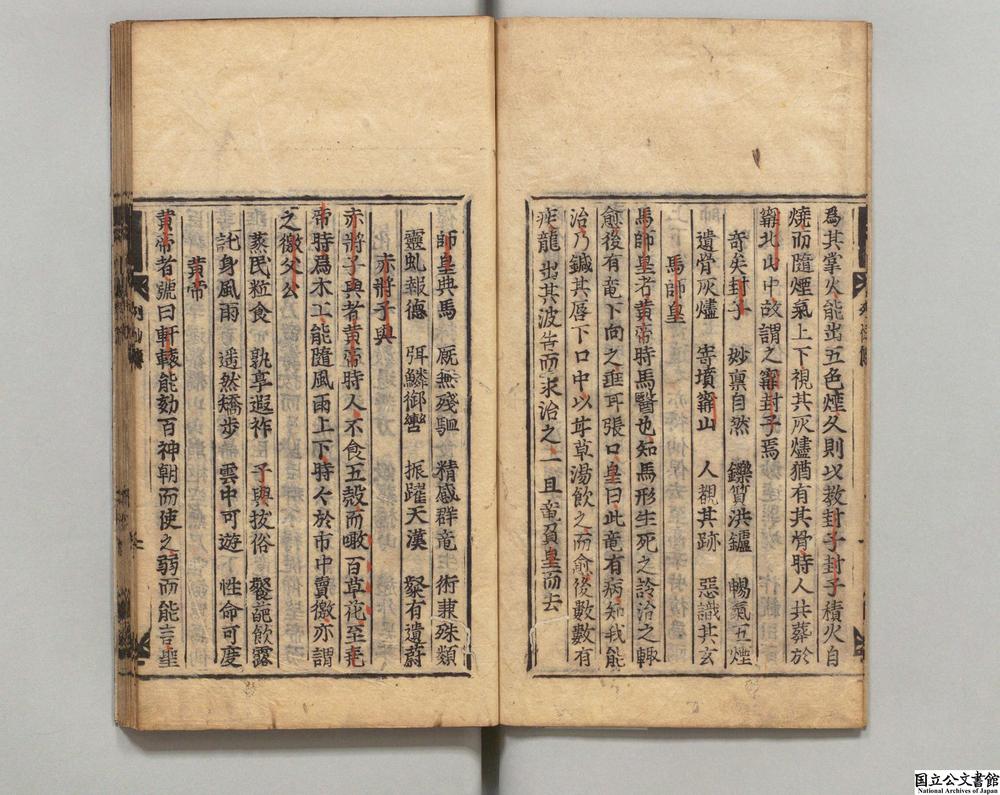 爲其掌火能出五色煙久則以教封子封子積火自
燒而隨煙氣上下視其灰燼猶有其骨時人共葬於
甯北山中故謂之甯封子焉
奇矣封子　妙禀自然　鑠質洪鑪　暢氣五煙
遺骨灰燼　寄墳甯山　人覩其跡　惡識其玄
馬師皇
馬師皇者黄帝時馬醫也知馬形生死之診治之輙
愈後有竜下向之垂耳張口皇曰此竜有病知我能
治乃鍼其唇下口中以甘草湯飲之而愈後數數有
疾龍出其波告而求治之一旦竜負皇而去
師皇典馬　厩無殘駆　精感群竜　術兼殊類
靈虬報德　弭鱗御轡　振躍天漢　粲有遺蔚
赤將子輿
赤將子輿者黄帝時人不食五穀而噉百草花至尭
帝時爲木工能隨風雨上下時々於市中賣繳亦謂
之繳父云
蒸民粒食　孰享遐祚　子輿拔俗　餐葩飲露
託身風雨　遥然矯步　雲中可遊　性命可度
黄帝
黄帝者號曰軒轅能劾百神朝而使之弱而能言聖
国立公文書館
National Archives of Japan